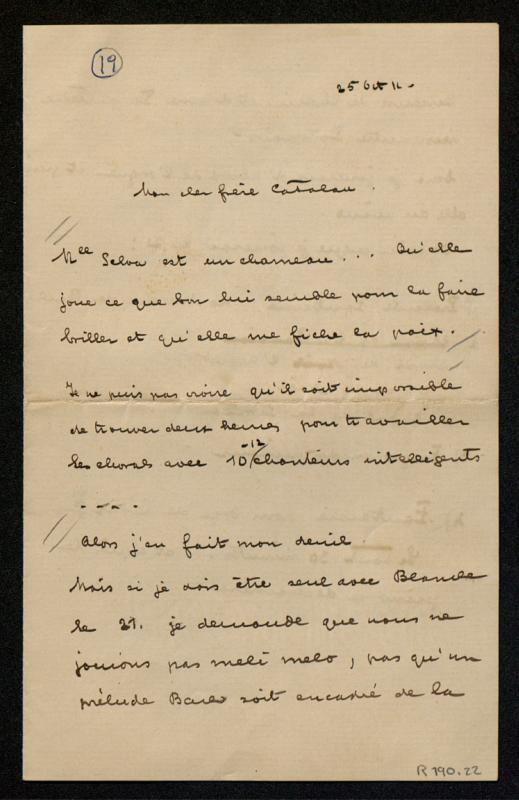 19
25 Oct 11.
Mon cher frère Catalan.
Mlle Selva est un chameau... Qu'elle
joue ce que bon lui semble pour la faire
briller et qu'elle me fiche la paix.
Je ne puis pas croire qu'il soit impossible
de trouver deux heures pour travailler
les chorals avec 10-12 chanteurs intelligents
....
Alors j'en fait mon deuil.
Mais si je dois être seul avec Blanche
le 21. je demande que nous ne
jouions pas meli melo, pas qu'un
prélude Bach soit encadré de la
R 190.22